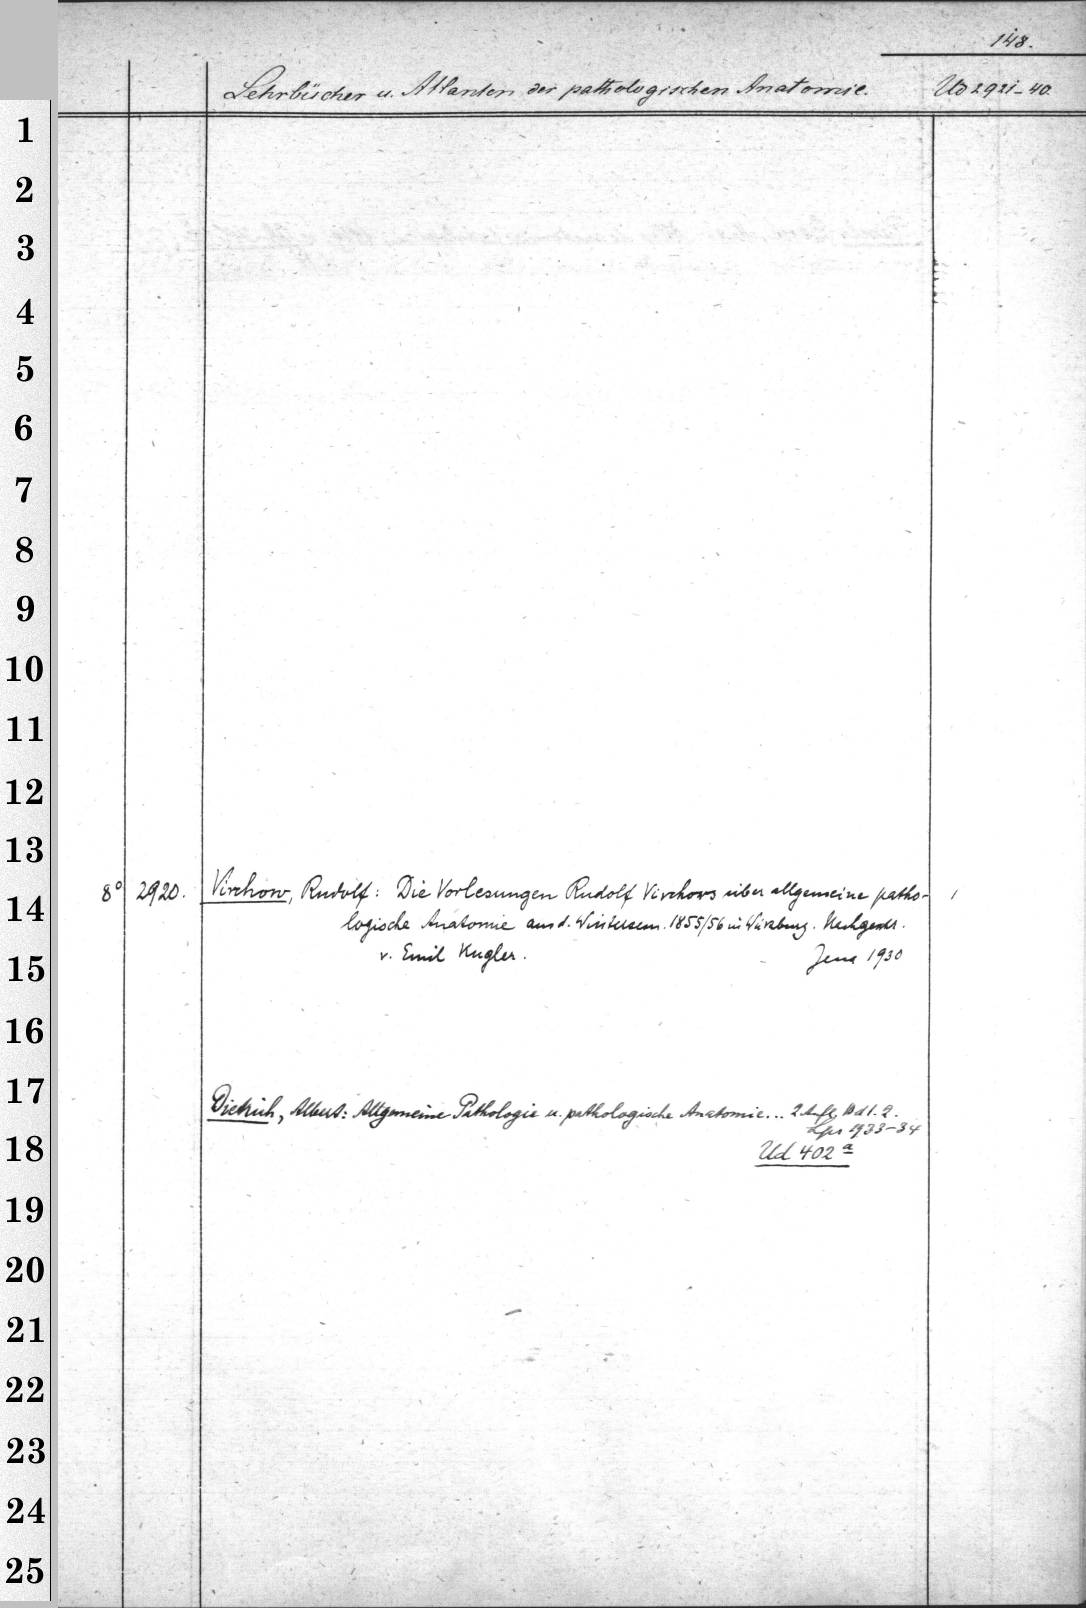 148.
Lehrbücher u. Atlanten der pathologischen Anatomie. Ud 2921-40.
1
2
3
4
5
6
7
8
9
10
11
12
13
8° 2920. Virchow, Rudolf: Die Vorlesungen Rudolf Virchows über allgemeine patho- 1
14
logische Anatomie aus d. Wintersem. 1855/56 in Würzburg. Nachgeschr.
v. Emil Kugler. Jena 1930
15
16
17
Dietrich, Albert: Allgemeine Pathologie u. pathologische Anatomie... 2. Aufl. Bd 1. 2.
Lpz 1933-34
18
Ud 402 a
19
20
21
22
23
24
25